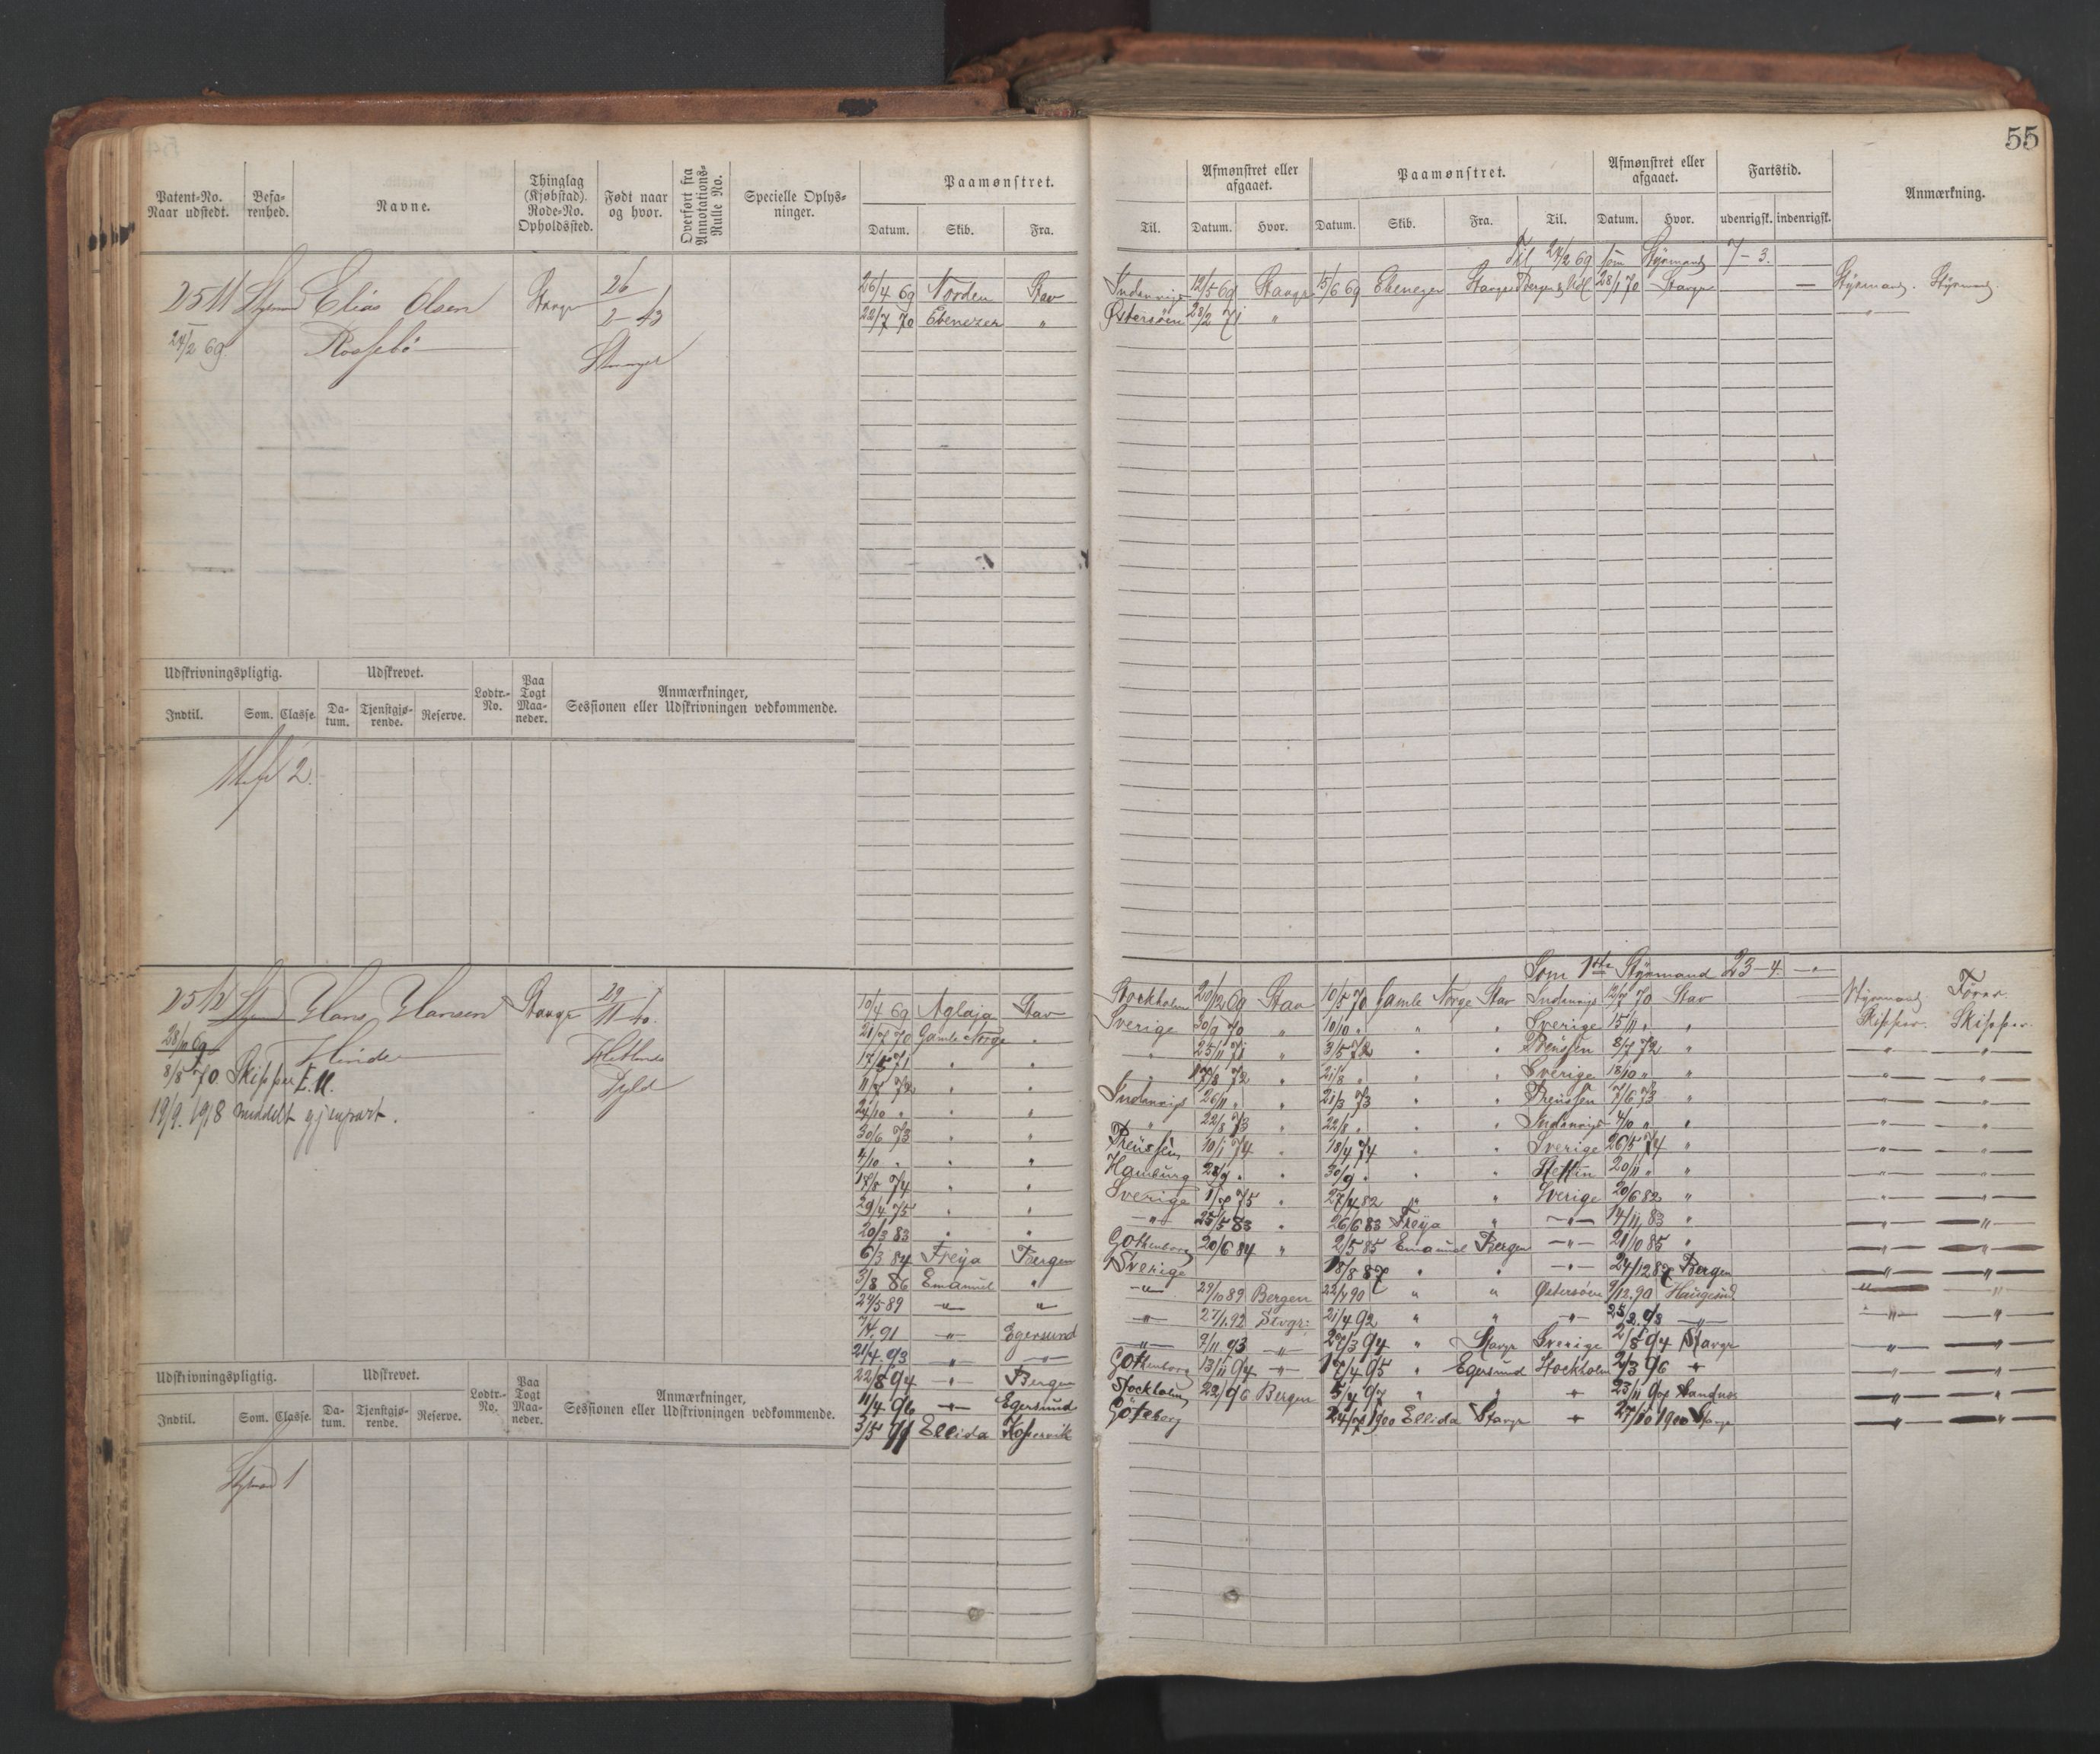 55
Patent-No. Naar udstedt. Befa-renhed. Navne. Thinglag (Kjøbstad). Rode-No. Opholdssted. Født naar og hvor. Overført fra Annotations-Rulle No. Specielle Oplys-ninger. Paamønstret.
Datum. Skib. Fra.
Afmønstret eller afgaaet. Paamønstret. Afmønstret eller afgaaet. Fartstid. Anmærkning.
Til. Datum. Hvor. Datum. Skib. Fra. Til. Datum. Hvor. udenrigsk. indenrigsk.
Til 24/2 69 som Styrmand 7-3.
2511 Elias Olsen Stavgr 26/2-43 26/4 69 Norden Stav Indenrigs 12/5 69 Stavgr 15/6 69 Ebenezer Stavgr 28/1 70 Stavgr — Styrmand. Styrmand.
24/2 69. Rossebø Stavanger 22/7 70 Ebenezer " Østersøen 28/2 71 " — " —
Udskrivningspligtig. Udskrevet. Lodtr.-No. Paa Togt Maa-neder. Anmærkninger, Sessionen eller Udskrivningen vedkommende.
Indtil. Som. Classe. Da-tum. Tjenstgjø-rende. Reserve.
2.
Som 1ste Styrmand 23-4. — " —
2512 Hans Hansen Stavgr 29/11 40. 10/4 69 Aglaja Stav Stockholm 20/12 69 Stav 10/5 70 Gamle Norge Stav Indenrigs 12/7 70 Stav Styrmand Fører.
Hinde Hetland 21/7 70 Gamle Norge " Sverige 30/9 70 " 10/10 " " " Sverige 15/11 " " Skipper. Skipper.
8/8 70. Skipper E.U. Fjeld 17/5 71 " " " 25/11 71 " 3/5 72 " " Preussen 8/7 72 " — " — — " —
19/9. 1918 middelt gjenpart. 11/7 72 " " " 17/8 72 " 21/8 " " " Sverige 18/10 " " — " — — " —
24/10 " " " Indenrigs 26/11 " " 21/3 73 " " Preussen 7/6 73 " — " — — " —
30/6 73 " " " 22/8 73 " 22/8 " " " Indenrigs 4/10 " " — " — — " —
4/10 " " " Preussen 10/1 74 " 18/4 74 " " Sverige 26/5 74 " — " — — " —
17/8 74 " " Hamburg 28/9 " " 30/9 " " " Stettin 20/11 " " — " — — " —
29/4 75 " " Sverige 1/7 75 " 27/4 82 " " Sverige 20/6 82 " — " — — " —
20/3 83 " " — " — 25/5 83 " 26/6 83 Freya " — " — 14/11 83 " — " — — " —
6/3 84 Freya Bergen Gothenborg 20/6 84 " 2/5 85 Emanuel Bergen — " — 21/10 85 " — " — — " —
3/8 86 Emanuel " Sverige 18/8 87 " " — " — 24/12 87 Bergen — " — — " —
24/5 89 — " — " — " — 29/10 89 Bergen 22/7 90 " " Østersøen 9/12. 90 Haugesund — " — — " —
7/4. 91 — " — Egersund — " — 27/1. 92 Stvgr: 21/4 92 " " — " — 25/2. 93 — " — — " — — " —
21/4. 93 — " — — " — — " — 9/11 93 — " — 29/3 94 " Stavgr Sverige 2/8 94 Stavgr — " — — " —
22/8 94 — " — Bergen Gothenborg 13/11 94 — " — 17/4 95 " Egersund Stockholm 2/3 96 " — " — — " —
11/4. 96 — " — Egersund Stockholm 22/9 96 Bergen 5/4 97 " " " 23/11 97 Sandnes — " — — " —
3/5 99 Ellida Kopervik Göteborg 24/7 1900 Ellida Stavgr " 27/10 1900 Stavgr — " — — " —
Udskrivningspligtig. Udskrevet. Lodtr.-No. Paa Togt Maa-neder. Anmærkninger, Sessionen eller Udskrivningen vedkommende.
Indtil. Som. Classe. Da-tum. Tjenstgjø-rende. Reserve.
1